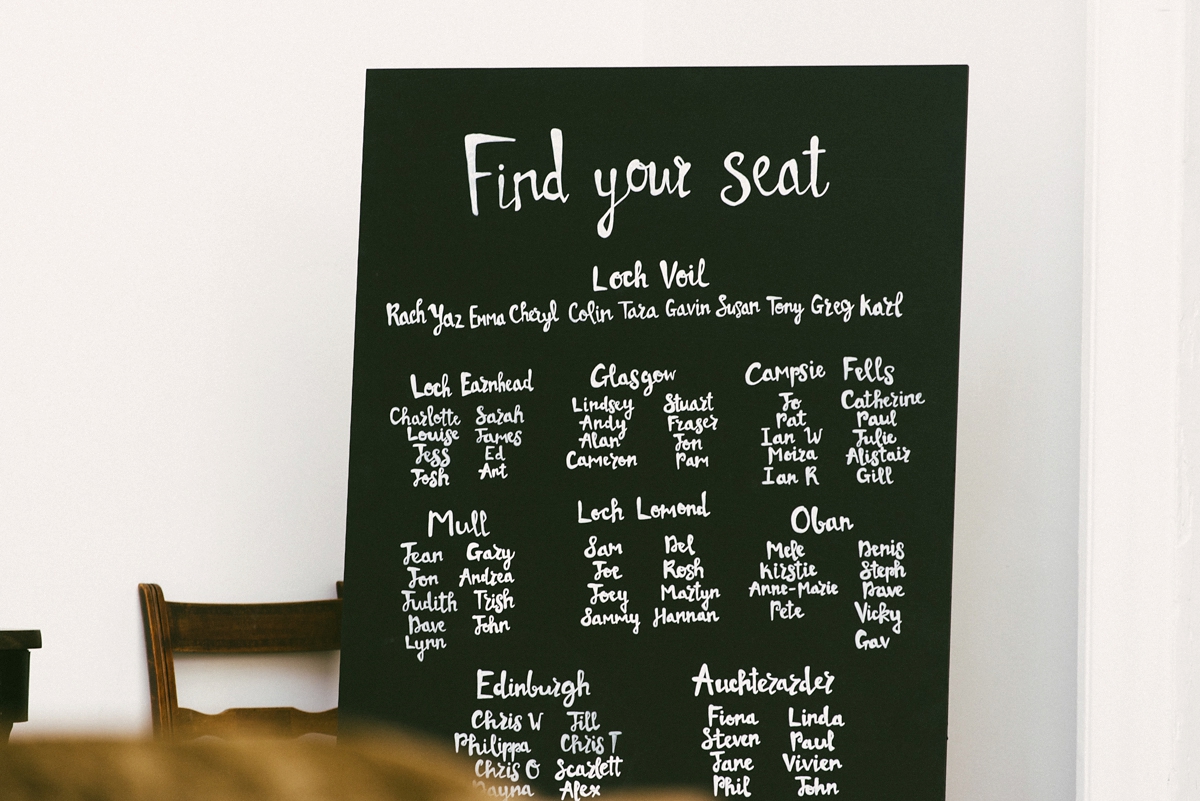 Find your seat
Loch Voil
Rach Yaz Emma Cheryl Colin Tara Gavin Susan Tony Greg Karl
Loch Earnhead
Charlotte Sarah
Louise James
Jess Ed
Josh Art
Glasgow
Lindsey Stuart
Andy Fraser
Alan Jon
Cameron Pam
Campsie Fells
Jo Catherine
Pat Paul
Ian W Julie
Moira Alistair
Ian R Gill
Mull
Jean Gary
Jon Andrea
Judith Trish
Dave John
Lynn
Loch Lomond
Sam Del
Joe Rosh
Joey Martyn
Sammy Hannan
Oban
Mele Denis
Kirstie Steph
Anne-Marie Dave
Pete Vicky
Gav
Edinburgh
Chris W Jill
Philippa Chris T
Chris O Scarlett
Dayna Alex
Auchterarder
Fiona Linda
Steven Paul
Jane Vivien
Phil John